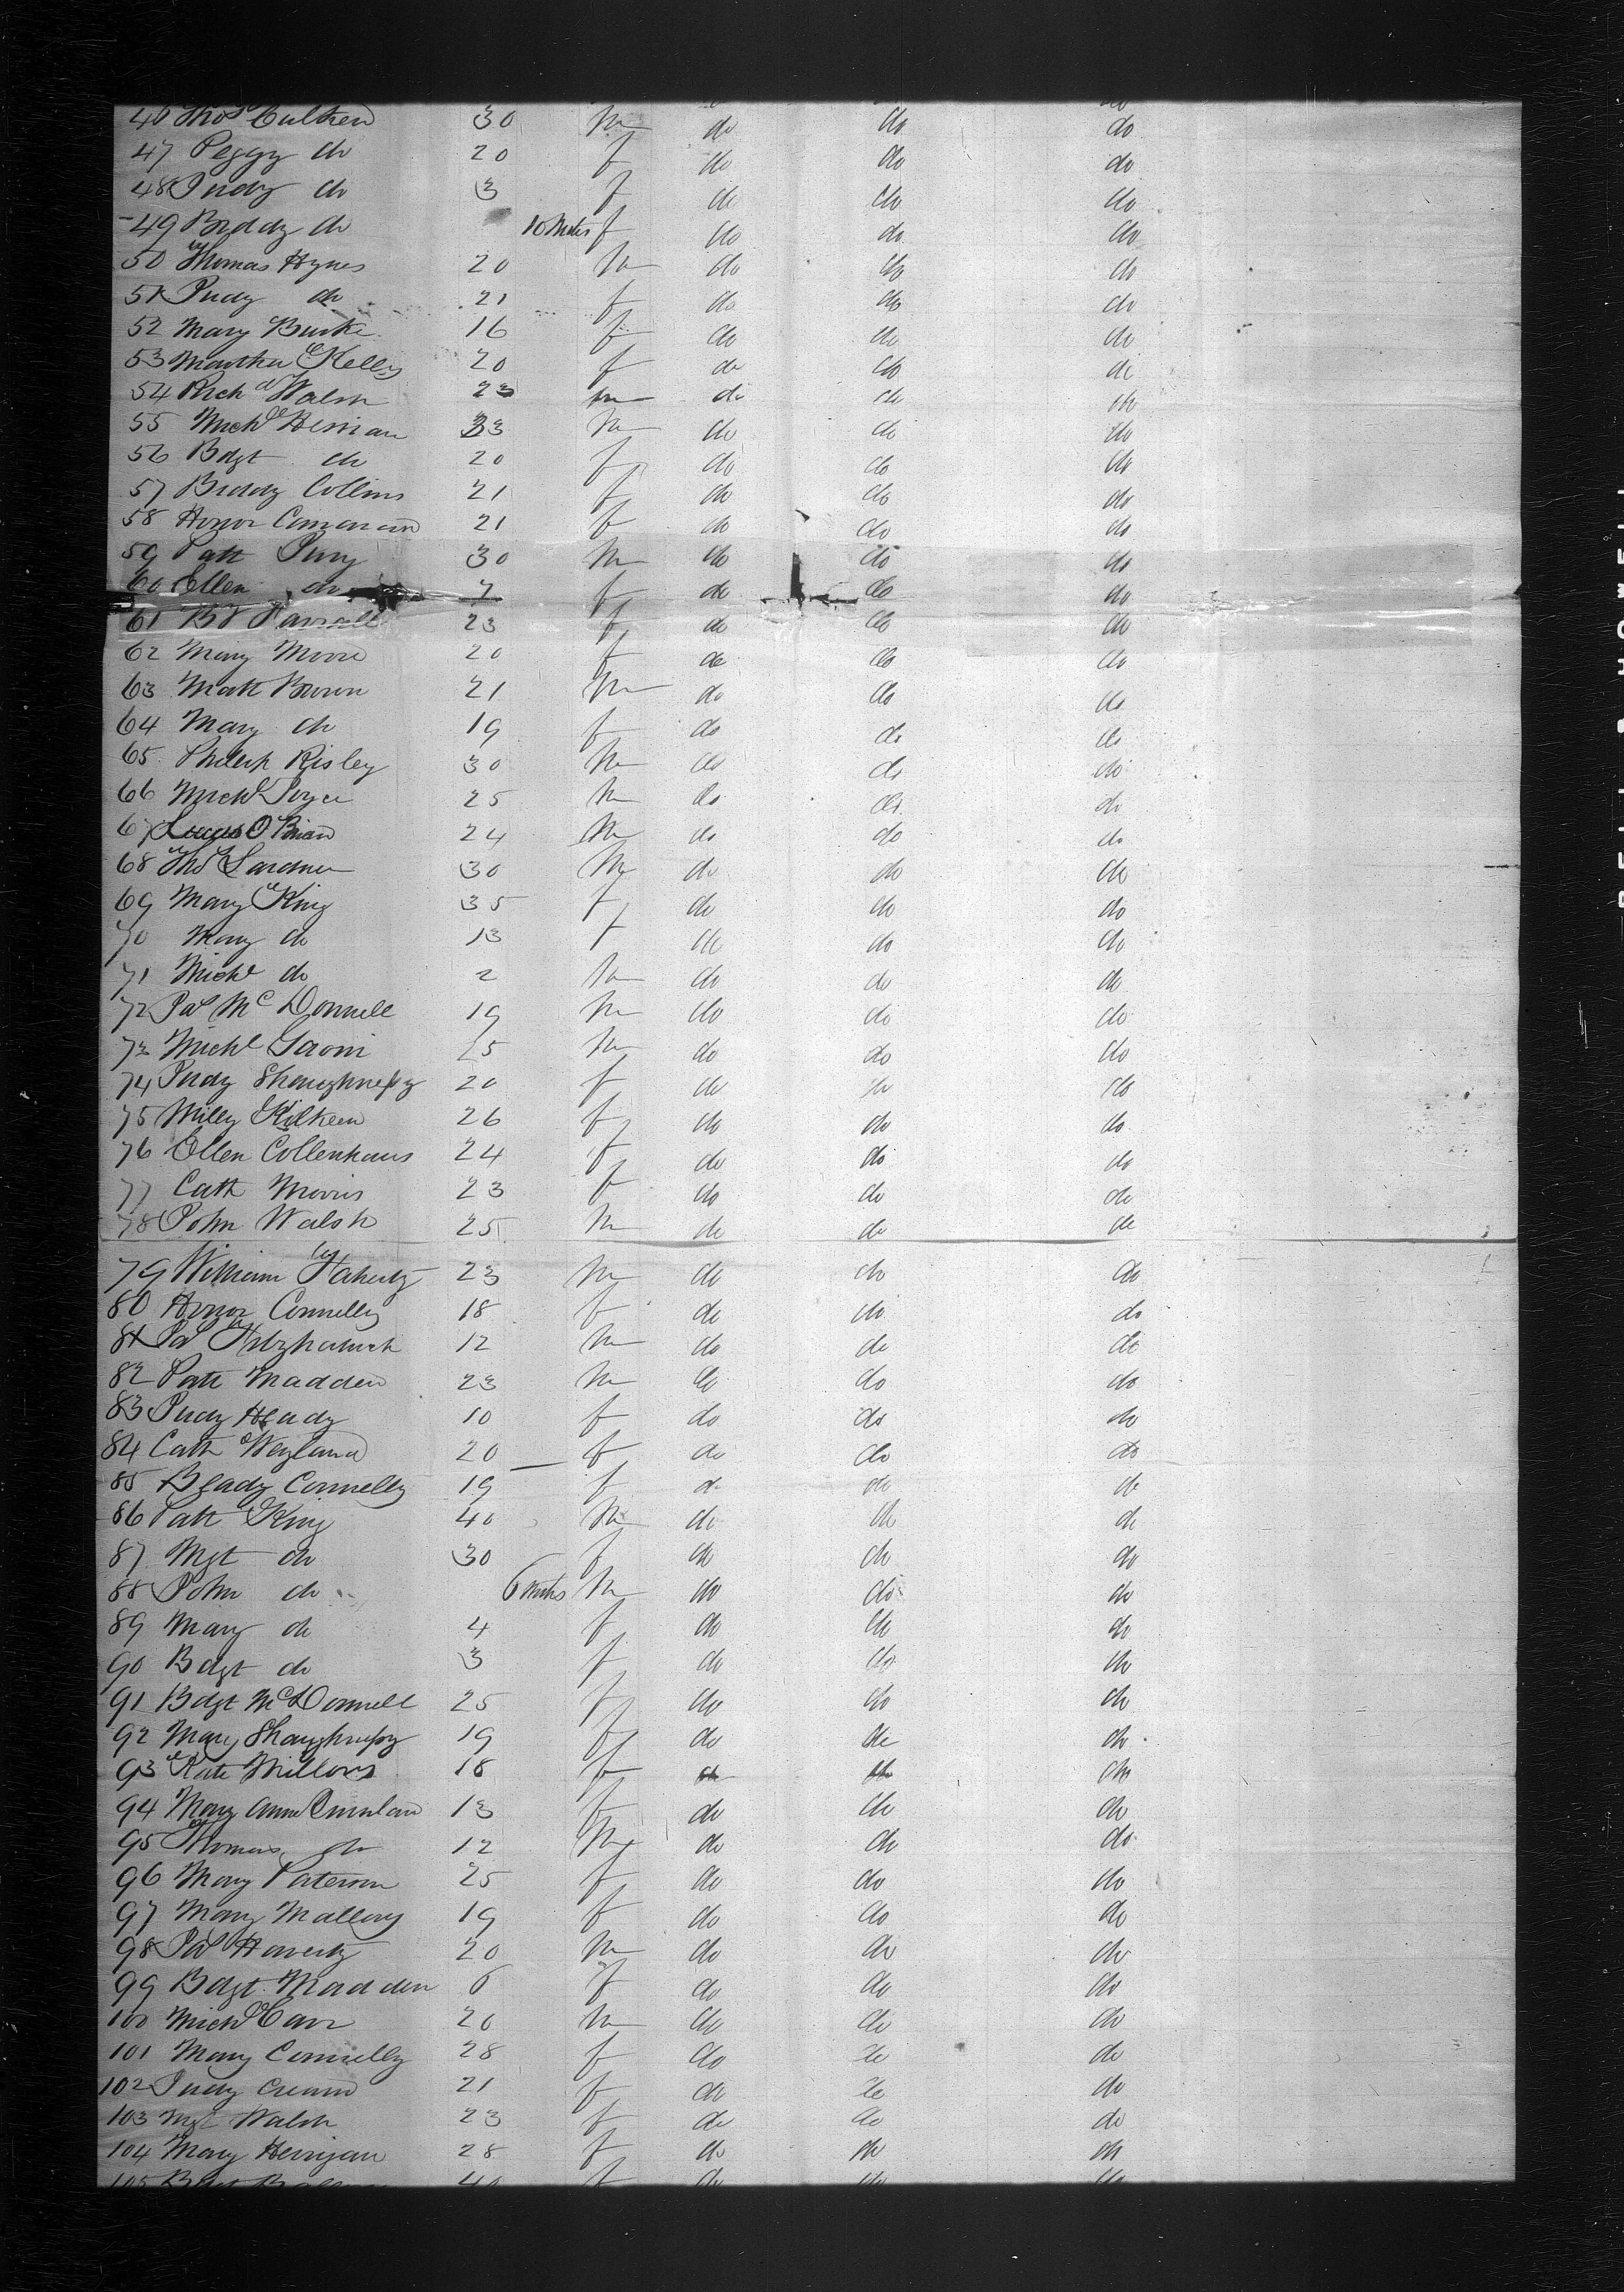 46 Thos Culkeen 30 m do do do
47 Peggy do 20 f do do do
48 Judy do 3 f do do do
49 Biddy do 10 Mths f do do do
50 Thomas Hynes 20 m do do do
51 Judy do 21 f do do do
52 Mary Burke 16 f do do do
53 Martha Kelly 20 f do do do
54 Richd Walsh 23 m do do do
55 Michl 33 m do do do
56 Bdgt do 20 f do do do
57 Briddy Collins 21 f do do do
58 Honor 21 f do do do
59 Patt 30 m do do do
60 Ellen do 7 f do do do
61 Bd Farrall 23 f do do do
62 Mary Moore 20 f do do do
63 Matt Brown 21 m do do do
64 Mary do 19 f do do do
65 Phileip Risley 30 m do do do
66 Michl Joyce 25 m do do do
67 O Brian 24 m do do do
68 Thos Lardner 30 m do do do
69 Mary King 35 f do do do
70 Mary do 13 f do do do
71 Michl do 2 m do do do
72 Pat McDonnell 19 m do do do
73 Michl 25 m do do do
74 Judy Shaughnessy 20 f do do do
75 Milly Kilkeen 26 f do do do
76 Ellen Collenhans 24 f do do do
77 Cath Morris 23 f do do do
78 John Walsh 25 m do do do
79 William Flaherty 23 m do do do
80 Honor Connelly 18 f do do do
81 Pat Fitzpatrick 12 m do do do
82 Patt Madden 23 m do do do
83 Judy Heady 10 f do do do
84 Cath Weyland 20 f do do do
85 Beady Connelly 19 f do do do
86 Patt King 40 m do do do
87 Mgt do 30 f do do do
88 John do 6 mths m do do do
89 Mary do 4 f do do do
90 Bdgt do 3 f do do do
91 Bdgt McDonnell 25 f do do do
92 Mary Shaughnessy 19 f do do do
93 Kate Millows 18 f do do do
94 Mary Anne Quinlan 13 f do do do
95 Thomas do 12 m do do do
96 Mary Paterson 25 f do do do
97 Mary Mallory 19 f do do do
98 Pat Haverty 20 m do do do
99 Bdgt Madden 6 f do do do
100 Michl Carr 20 m do do do
101 Mary Connelly 28 f do do do
102 Judy Cream 21 f do do do
103 Mgt Walsh 23 f do do do
104 Mary Herrigan 28 f do do do
105 Bdgt 40 f do do do